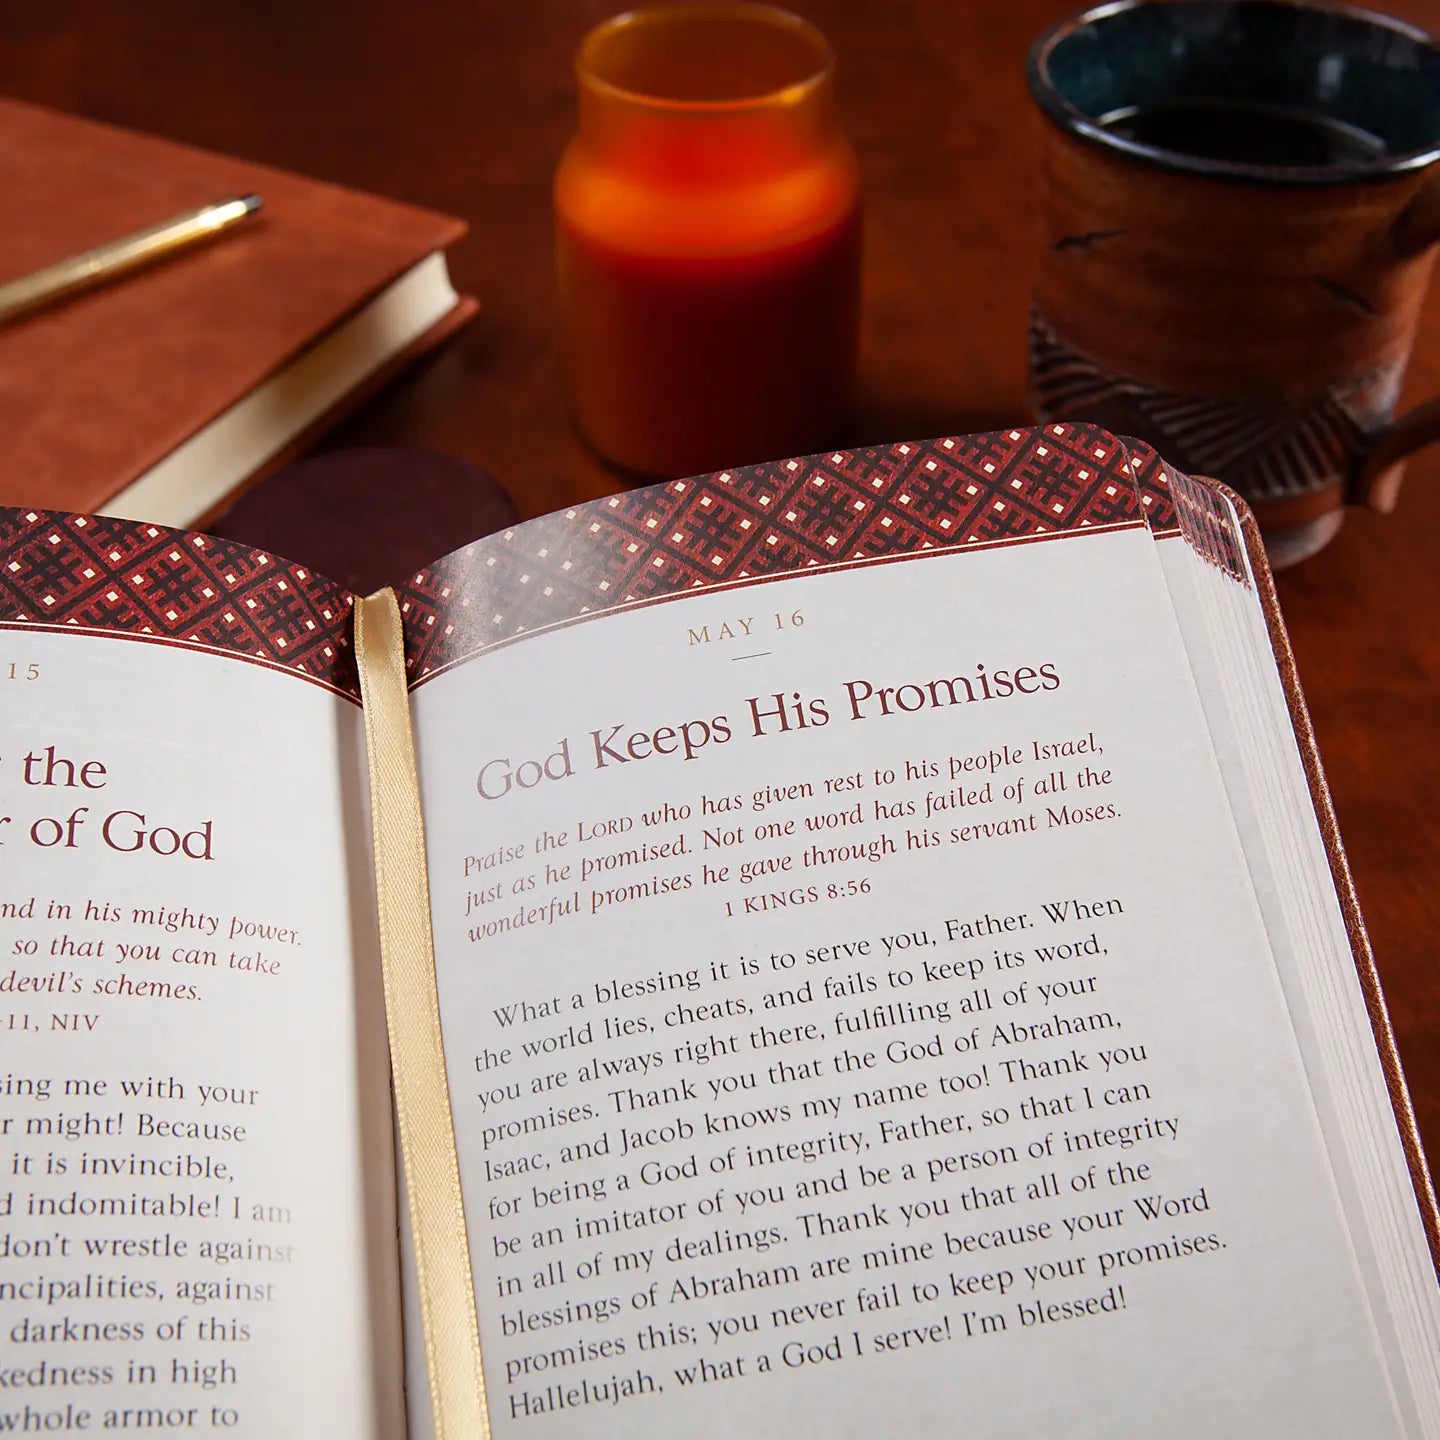 15
the
of God
in his mighty power.
so that you can take
devil's schemes.
11, NIV
me with your
might! Because
it is invincible,
indomitable! I am
don't wrestle against
against
darkness of this
in high
whole armor to
MAY 16
God Keeps His Promises
Praise the LORD who has given rest to his people Israel,
just as he promised. Not one word has failed of all the
wonderful promises he gave through his servant Moses.
1 KINGS 8:56
What a blessing it is to serve you, Father. When
the world lies, cheats, and fails to keep its word,
you are always right there, fulfilling all of your
promises. Thank you that the God of Abraham,
Isaac, and Jacob knows my name too! Thank you
for being a God of integrity, Father, so that I can
be an imitator of you and be a person of integrity
in all of my dealings. Thank you that all of the
blessings of Abraham are mine because your Word
promises this; you never fail to keep your promises.
Hallelujah, what a God I serve! I'm blessed!